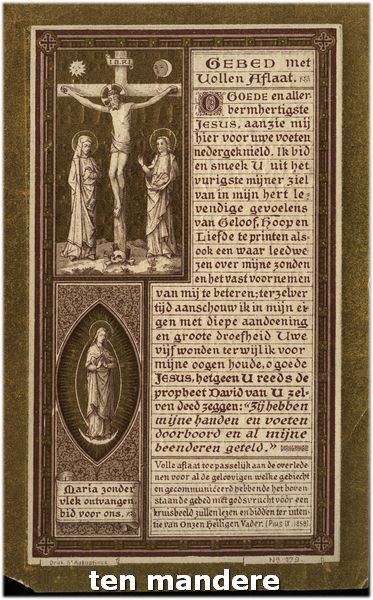 I.N.R.I.
GEBED met
Vollen Aflaat.
O GOEDE en aller-
bermhertigste
JESUS, aanzie mij
hier voor uwe voeten
nedergeknield. Ik bid
en smeek U uit het
vurigste mijner ziel
van in mijn hert le-
vendige gevoelens
van Geloof, Hoop en
Liefde te printen als-
ook een waar leedwe-
zen over mijne zonden
en het vast voornemen
van mij te beteren; terzelver
tijd aanschouw ik in mijn ei-
gen met diepe aandoening
en groote droefheid Uwe
vijf wonden terwijl ik voor
mijne oogen houde, o goede
JESUS, hetgeen U reeds de
propheet David van U zel-
ven deed zeggen: «Zij hebben
mijne handen en voeten
doorboord en al mijne
beenderen geteld.»
Volle aflaat toepasselijk aan de overlede-
nen voor al de geloovigen welke gebiecht
en gecommuniceerd hebbende het boven-
staande gebed met godsvrucht vóór een
kruisbeeld zullen lezen en bidden ter inten-
tie van Onzen Heiligen Vader. (Pius IX. 1858).
Maria zonder
vlek ontvangen
bid voor ons.
Druk. St Augustinus
No 179.
ten mandere